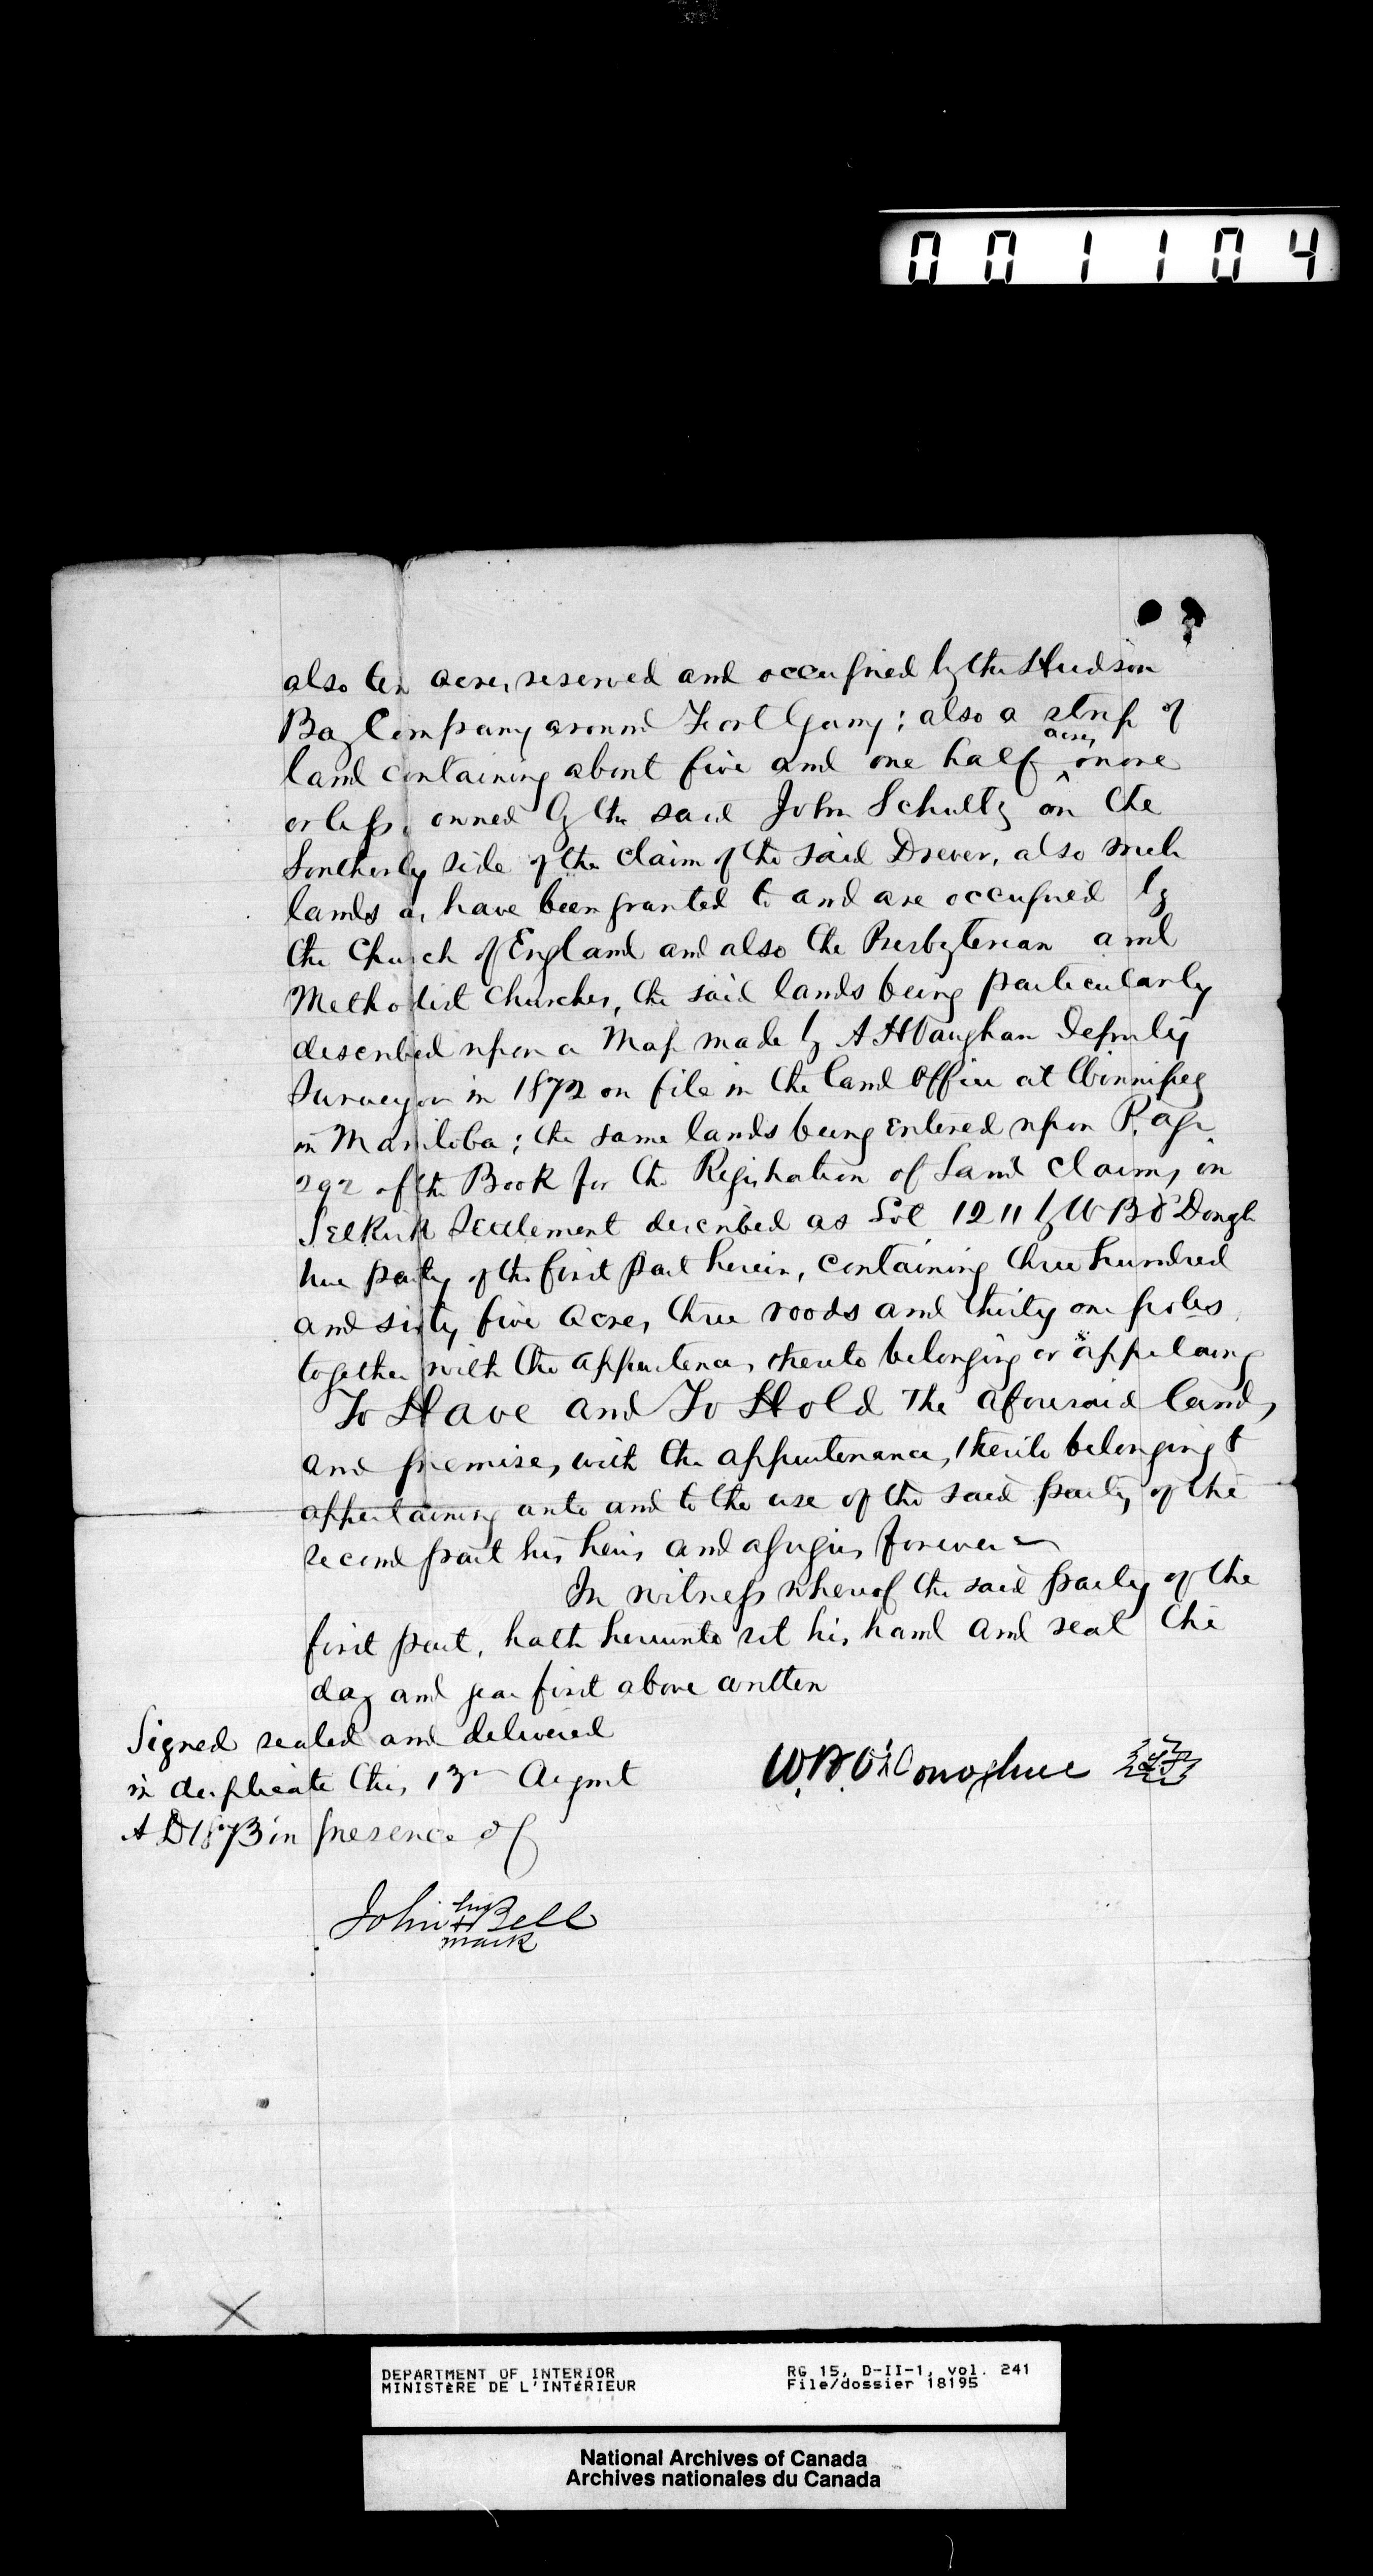 001104
also ten acres reserved and occupied by the Hudson
Bay Company around Fort Garry; also a strip of
land containing about five and one half acres more
or less, owned by the said John Schultz on the
Southerly side of the claim of the said Drever, also such
lands as have been granted to and are occupied by
the Church of England and also the Presbyterian and
Methodist Churches, the said lands being particularly
described upon a Map made by A H Vaughan Deputy
Surveyor in 1872 on file in the Land Office at Winnipeg
in Manitoba; the same lands being entered upon Page
292 of the Book for the Registration of Land Claims in
Selkirk Settlement described as Lot 1211 by W B O'Donog
hue party of the first part herein, containing three hundred
and sixty five acres, three roods and thirty one poles
together with the appurtences thereto belonging or
To Have and To Hold The aforesaid lands
and premises, with the appurtenances thereto belonging &
appertaining unto and to the use of the said party of the
second part his heirs and assigns forever
In witness whereof the said party of the
first part, hath hereunto set his hand and seal the
day and year first above written
Signed sealed and delivered
in duplicate this 13th August
A D 1873 in presence of
W. B. O'Donoghue LS
his
John + Bell
mark
X
DEPARTMENT OF INTERIOR RG 15, D-II-1, vol. 241
MINISTÈRE DE L'INTÉRIEUR File/dossier 18195
National Archives of Canada
Archives nationales du Canada